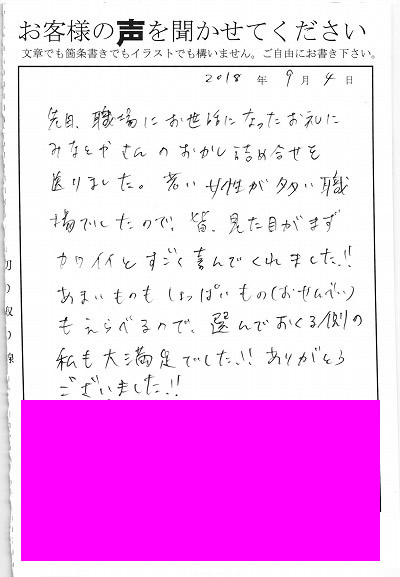 お客様の声を聞かせてください
文章でも箇条書きでもイラストでも構いません。ご自由にお書き下さい。
2018 年 9 月 4 日
先日、職場にお世話になったお礼に
みなとやさんのおかし詰め合せを
送りました。若い女性が多い職
場でしたので、皆、見た目がまず
カワイイとすごく喜んでくれました!!
あまいものもしょっぱいもの(おせんべい)
もえらべるので、選んでおくる側の
私も大満足でした!! ありがとう
ございました!!